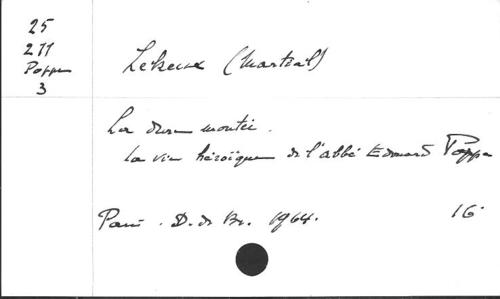 25
211
Poppe
3
Lekeux (Martial)
La dure montée.
La vie héroïque de l'abbé Edouard Poppe
Paris. D. de Br. 1964. 16°